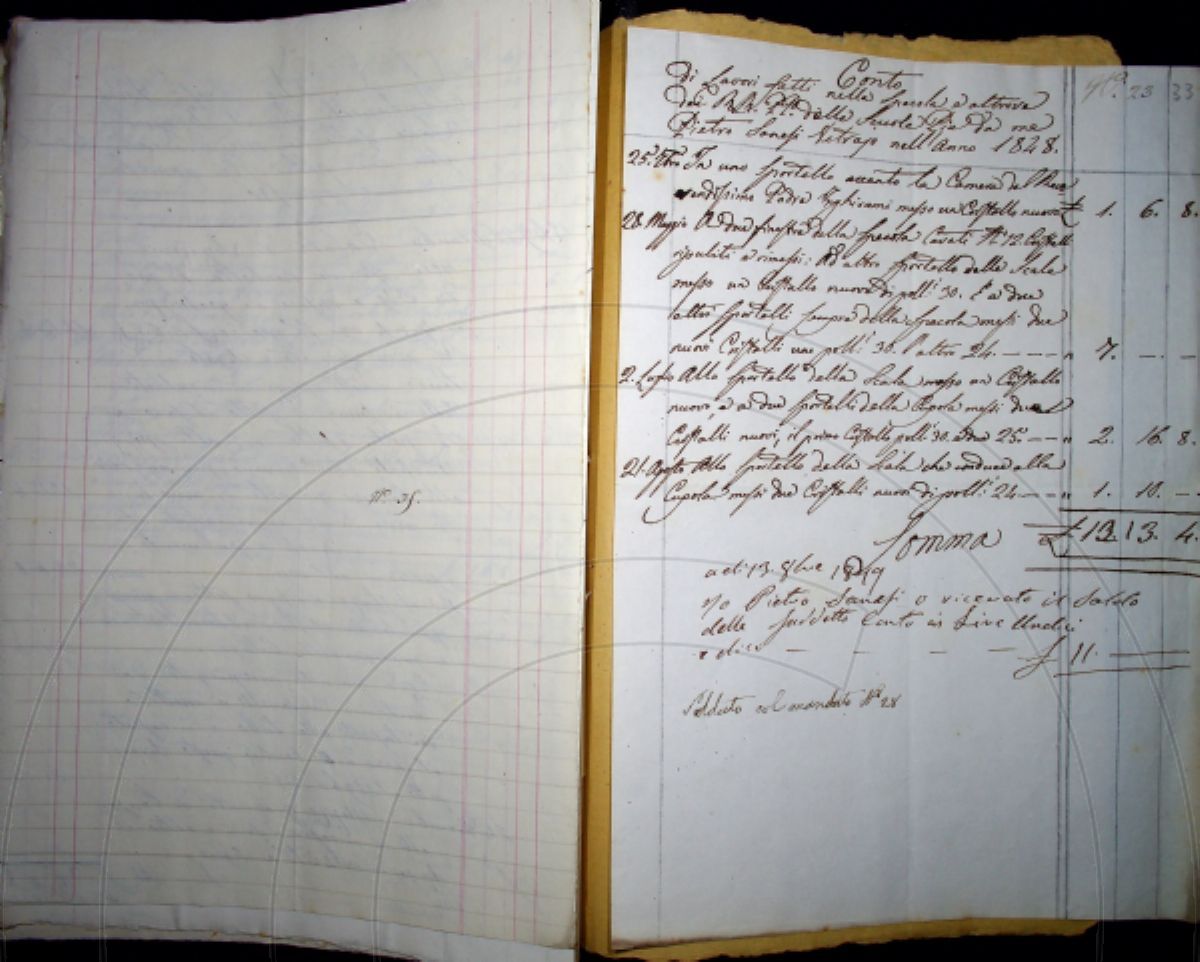 N.° 35.
N.° 23 33
Conto
Di Lavori fatti nella Specola e altrove
dei R.R. PP. delle Scuole Pie da me
Pietro Sanesi Vetrajo nell'Anno 1848.
25. In uno Sportello accanto la Camera del Reve-
rendissimo Padre Inghirami messo un Cristallo nuovo £ 1. 6. 8.
28. Maggio A due finestre della Specola Cavati N.° 12 Cristalli
ripuliti e rimessi: Ad altro Sportello delle Scale
messo un Cristallo nuovo di poll: 30. E a due
altri Sportelli sempre della Specola messi due
nuovi Cristalli uno poll: 30. l'altro 24. — — — „ 7. — . —
2. Luglio Allo Sportello della Scala messo un Cristallo
nuovo, e a due Sportelli della Cupola messi due
Cristalli nuovi, il primo Cristallo poll: 30. e due 25. — — „ 2. 16. 8.
21. Agosto Allo Sportello della Scala che conduce alla
Cupola messi due Cristalli nuovi di poll: 24. — — „ 1. 10. —
Somma £ 13. 13. 4.
a di 13. 9bre 1849
Io Pietro Sanesi o ricevuto il Saldo
delle Suddetto Conto in Lire Undici
e dico — — — — £ 11. —
Saldato col mandato N.° 28